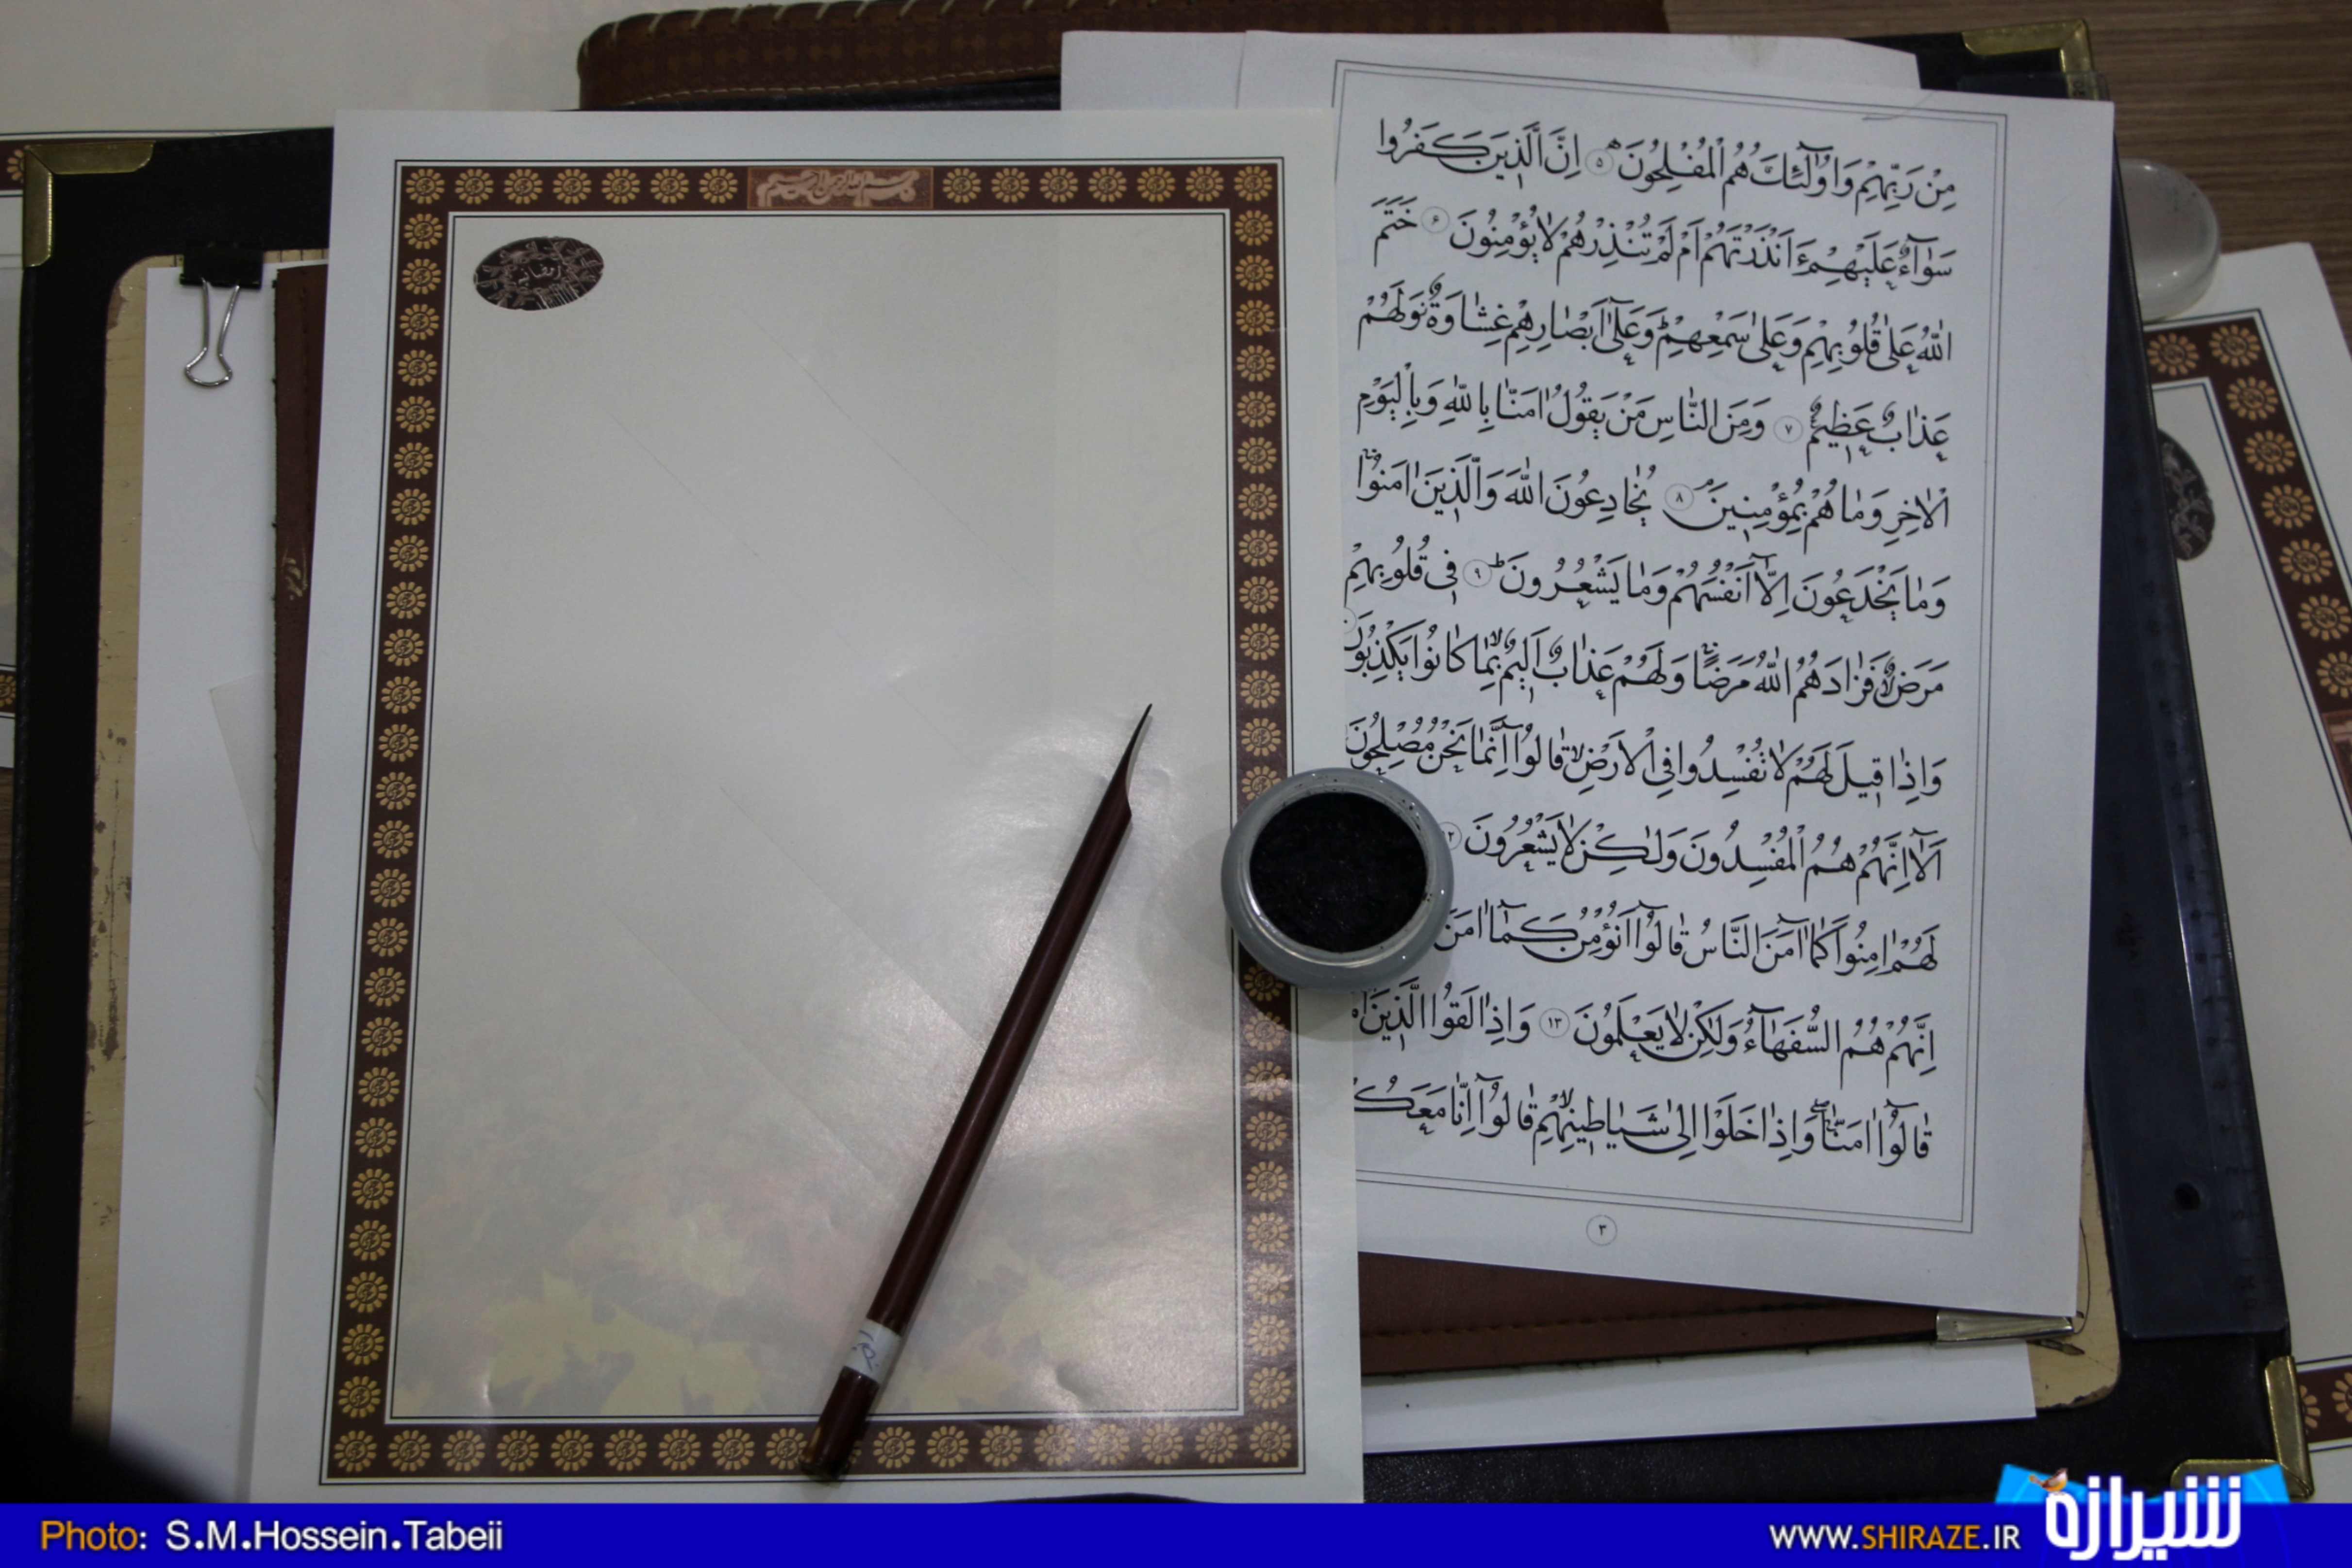 بسم الله الرحمن الرحیم
مِنْ رَبِّهِمْ وَاُولٰٓئِكَ هُمُ الْمُفْلِحُونَ ۵ اِنَّ الَّذِينَ كَفَرُوا
سَوَآءٌ عَلَيْهِمْ ءَاَنْذَرْتَهُمْ اَمْ لَمْ تُنْذِرْهُمْ لَا يُؤْمِنُونَ ۶ خَتَمَ
اللّٰهُ عَلٰى قُلُوبِهِمْ وَعَلٰى سَمْعِهِمْ وَعَلٰٓى اَبْصَارِهِمْ غِشَاوَةٌ وَلَهُمْ
عَذَابٌ عَظِيمٌ ۷ وَمِنَ النَّاسِ مَنْ يَقُولُ اٰمَنَّا بِاللّٰهِ وَبِالْيَوْمِ
الْاٰخِرِ وَمَا هُمْ بِمُؤْمِنِينَ ۸ يُخَادِعُونَ اللّٰهَ وَالَّذِينَ اٰمَنُوا
وَمَا يَخْدَعُونَ اِلَّآ اَنْفُسَهُمْ وَمَا يَشْعُرُونَ ۹ فِى قُلُوبِهِمْ
مَرَضٌ فَزَادَهُمُ اللّٰهُ مَرَضًا وَلَهُمْ عَذَابٌ اَلِيمٌ بِمَا كَانُوا يَكْذِبُونَ
وَاِذَا قِيلَ لَهُمْ لَا تُفْسِدُوا فِى الْاَرْضِ قَالُوٓا اِنَّمَا نَحْنُ مُصْلِحُونَ
اَلَآ اِنَّهُمْ هُمُ الْمُفْسِدُونَ وَلٰكِنْ لَا يَشْعُرُونَ
لَهُمْ اٰمِنُوا كَمَآ اٰمَنَ النَّاسُ قَالُوٓا اَنُؤْمِنُ كَمَآ اٰمَنَ
اِنَّهُمْ هُمُ السُّفَهَآءُ وَلٰكِنْ لَا يَعْلَمُونَ ۱۳ وَاِذَا لَقُوا الَّذِينَ
قَالُوٓا اٰمَنَّا وَاِذَا خَلَوْا اِلٰى شَيَاطِينِهِمْ قَالُوٓا اِنَّا مَعَكُ
۳
Photo: S.M.Hossein.Tabeii
WWW.SHIRAZE.IR
شیرازه